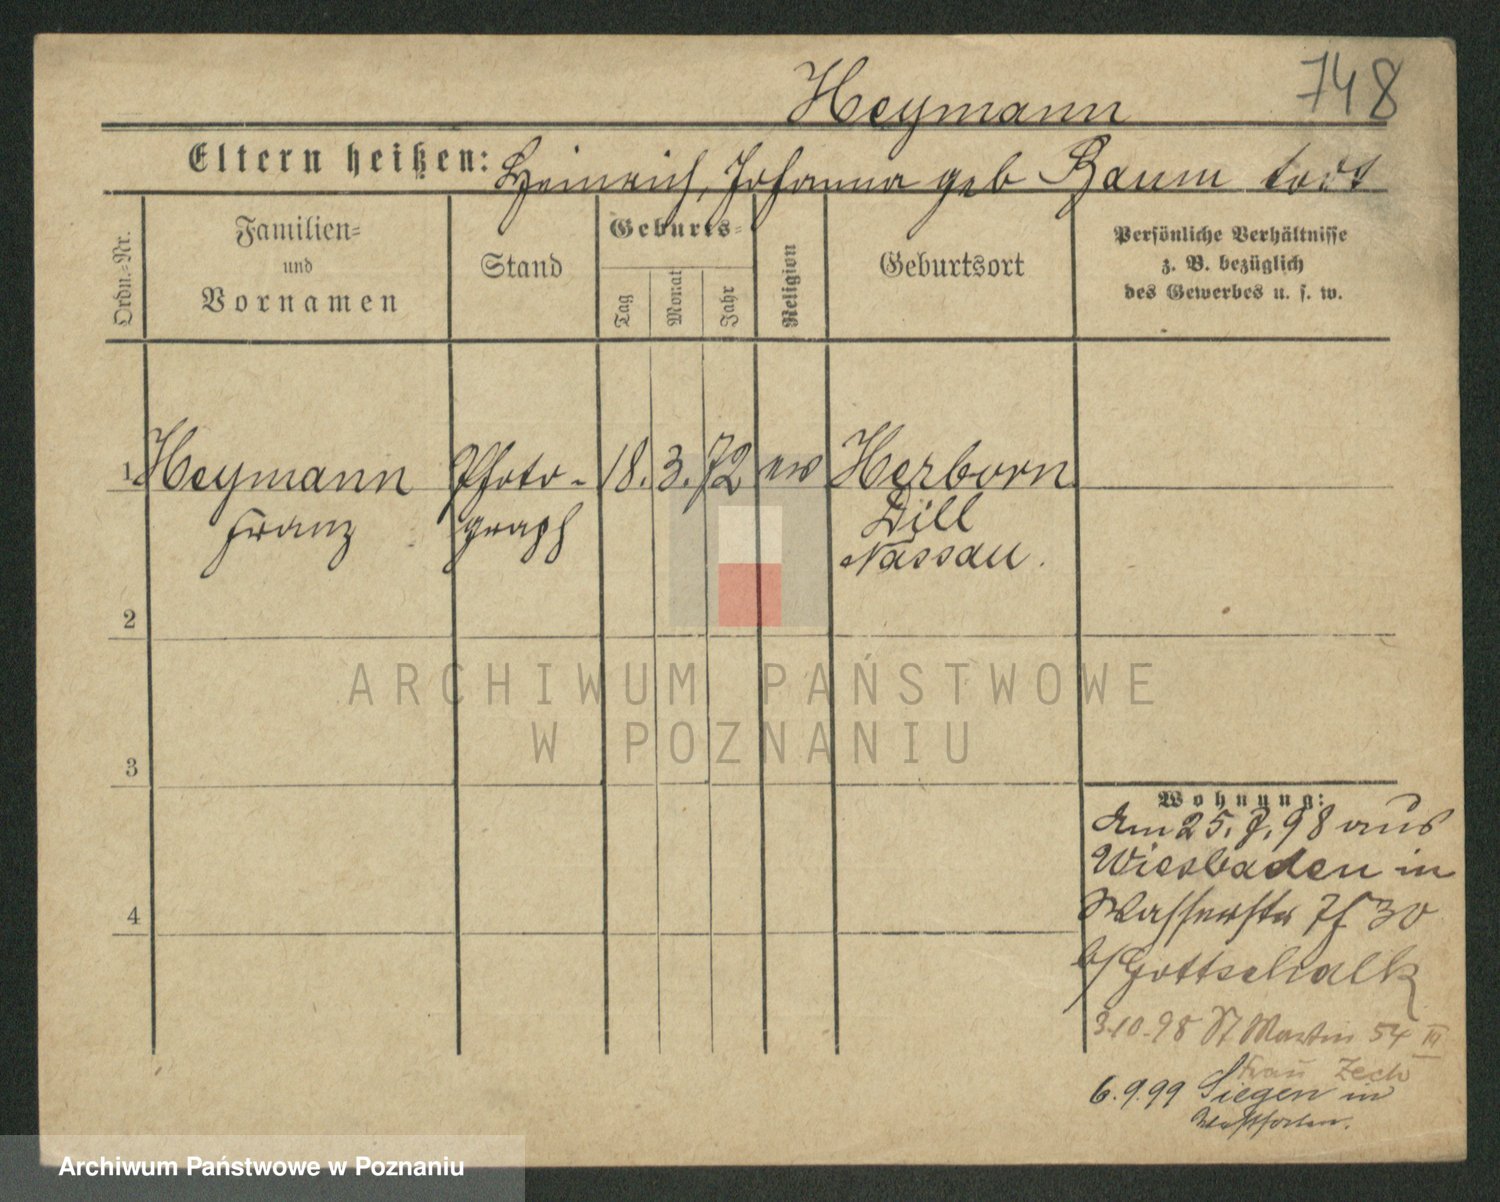 748
Heymann
Eltern heißen: Heinrich, Johanna geb Baum todt
Ordn.=Nr.
Familien=
und
Vornamen
Stand
Geburts=
Tag
Monat
Jahr
Religion
Geburtsort
Persönliche Verhältnisse
z. B. bezüglich
des Gewerbes u. s. w.
1 Heymann Photo- 18. 3. 72 ev Herborn
Franz graph Dill
Nassau.
2
3
4
ARCHIWUM PAŃSTWOWE
W POZNANIU
Wohnung:
Am 25. 7. 98 aus
Wiesbaden in
Wasserstr 30
b/ Gottschalk
3.10.98 St Martin 54 III
Frau Zech
6.9.99 Siegen in
Westfalen.
Archiwum Państwowe w Poznaniu